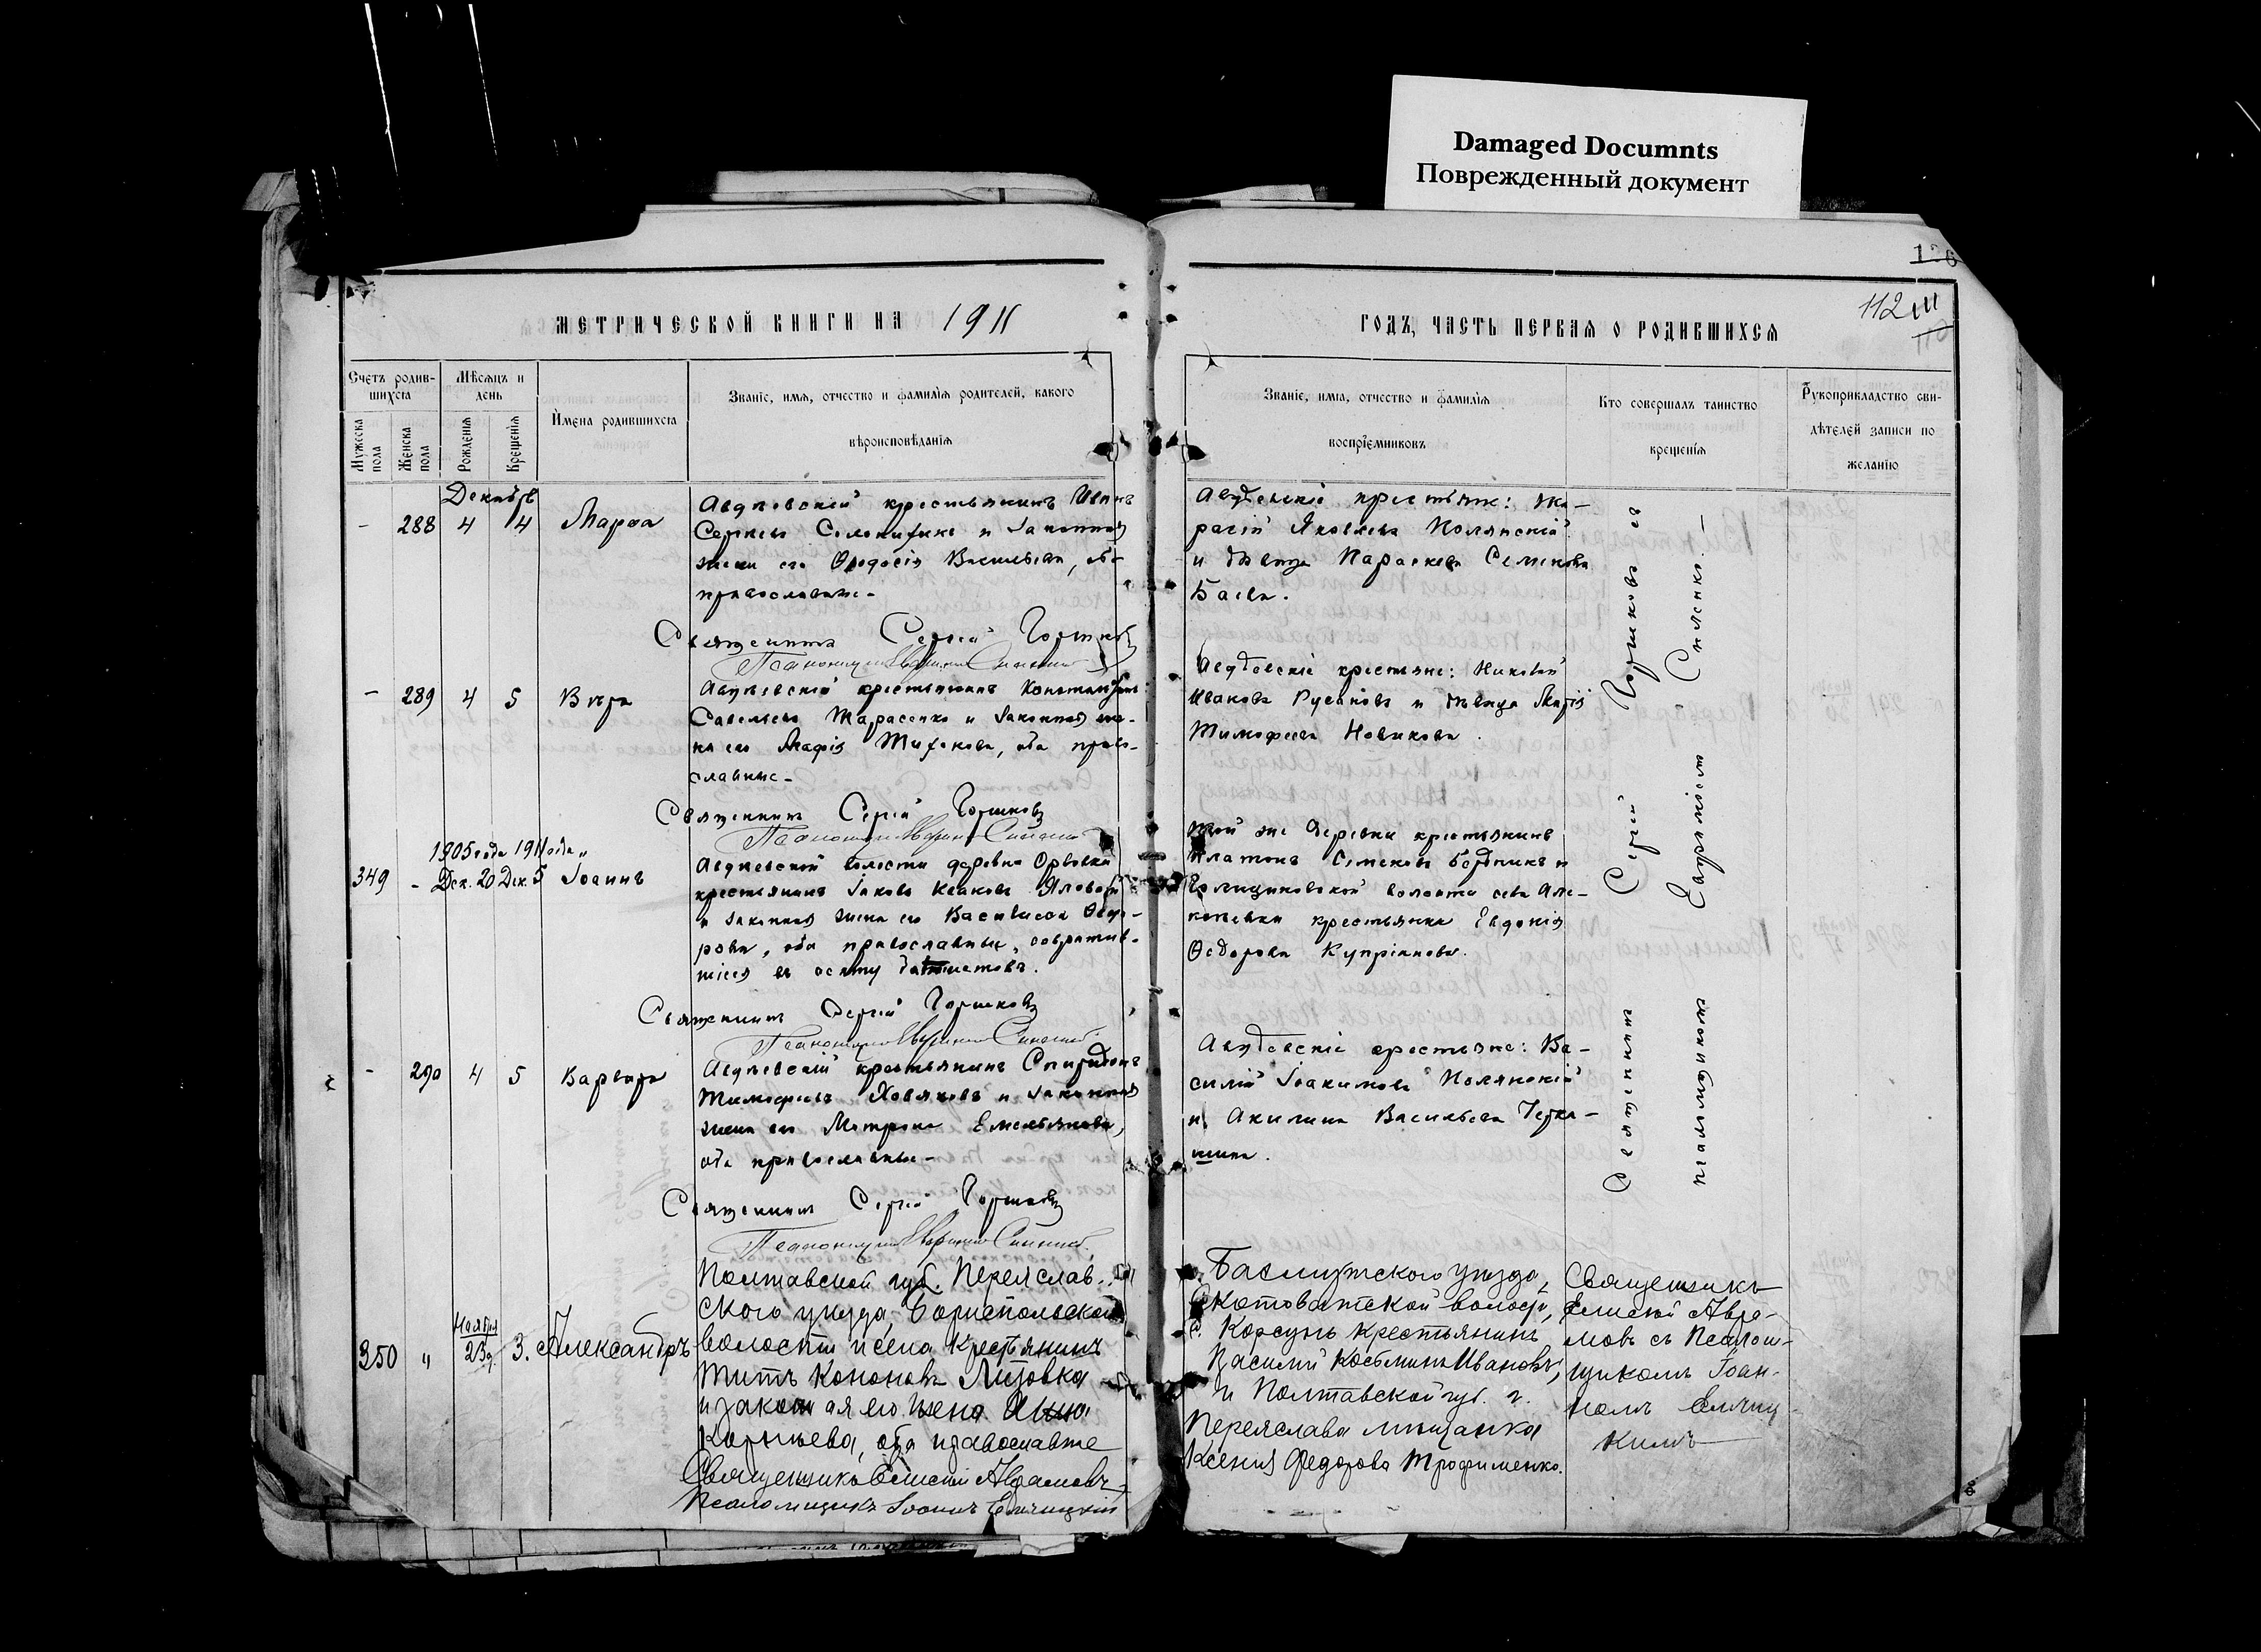 Damaged Documnts
Поврежденный документ
112
МЕТРИЧЕСКОЙ КНИГИ НА 1911
ГОДЪ, ЧАСТЬ ПЕРВАЯ О РОДИВШИХСЯ
Счетъ родив-
шихся
Мужеска
пола
Женска
пола
Мѣсяцъ и
день
Рожденія
Крещенія
Имена родившихся
Званіе, имя, отчество и фамилія родителей, какого
вѣроисповѣданія
Званіе, имя, отчество и фамилія
воспріемниковъ
Кто совершалъ таинство
крещенія
Рукоприкладство сви-
дѣтелей записи по
желанію
Декабрь
- 288 4 4 Марѳа
Авдѣевскій крестьянинъ Иванъ
и законная
жена его Ѳеодосія Васильева, оба
православные.
Священникъ Сергій Горшковъ
Авдѣевскіе крестьяне:
Яковлевъ Полянскій
и дѣвица Параскева Семенова
Баева.
- 289 4 5 Вѣра
Авдѣевскій крестьянинъ Константинъ
Савельевъ Тарасенко и законная же-
на его Марія Тихонова, оба право-
славные.
Священникъ Сергій Горшковъ
Авдѣевскіе крестьяне: Николай
Ивановъ Русановъ и дѣвица Марія
Тимофеева Новикова.
1905 года 1911 года
349 - Дек. 20 Дек. 5 Іоаннъ
Авдѣевской волости деревни Орловки
крестьянинъ Іаковъ Ивановъ Яловой
и законная жена его Василисса Ѳедо-
рова, оба православные, совратив-
шіеся въ секту
Священникъ Сергій Горшковъ
Той же деревни крестьянинъ
Платонъ Семеновъ Бодникъ и
волости села Але-
ксѣевки крестьянка Евдокія
Ѳедорова Купріянова.
- 290 4 5 Варвара
Авдѣевскій крестьянинъ Спиридонъ
Тимофеевъ Ховяковъ и законная
жена его Матрона Емельянова,
оба православные.
Священникъ Сергій Горшковъ
Авдѣевскіе крестьяне: Ва-
силій Іоакимовъ Полянскій
и Акилина Васильева Черка-
шина.
Священникъ Сергій Горшковъ съ
псаломщикомъ
350 " Ноября 23 3. Александръ
Полтавской губ. Переяслав-
ского уѣзда, Бориспольской
волости и села крестьянинъ
Титъ Кононовъ Литовка
и законная его жена Анна
Корнѣева, оба православные
Священникъ Елисей Авраамовъ
Псаломщикъ Іоаннъ
Бахмутского уѣзда,
Скотоватской волости,
с. Корсунь крестьянинъ
Василій Косьминъ Ивановъ,
и Полтавской губ. г.
Переяслава мѣщанка
Ксенія Федорова Трофименко.
Священникъ
Елисей Авра-
мовъ съ псалом-
щикомъ Іоан-
номъ